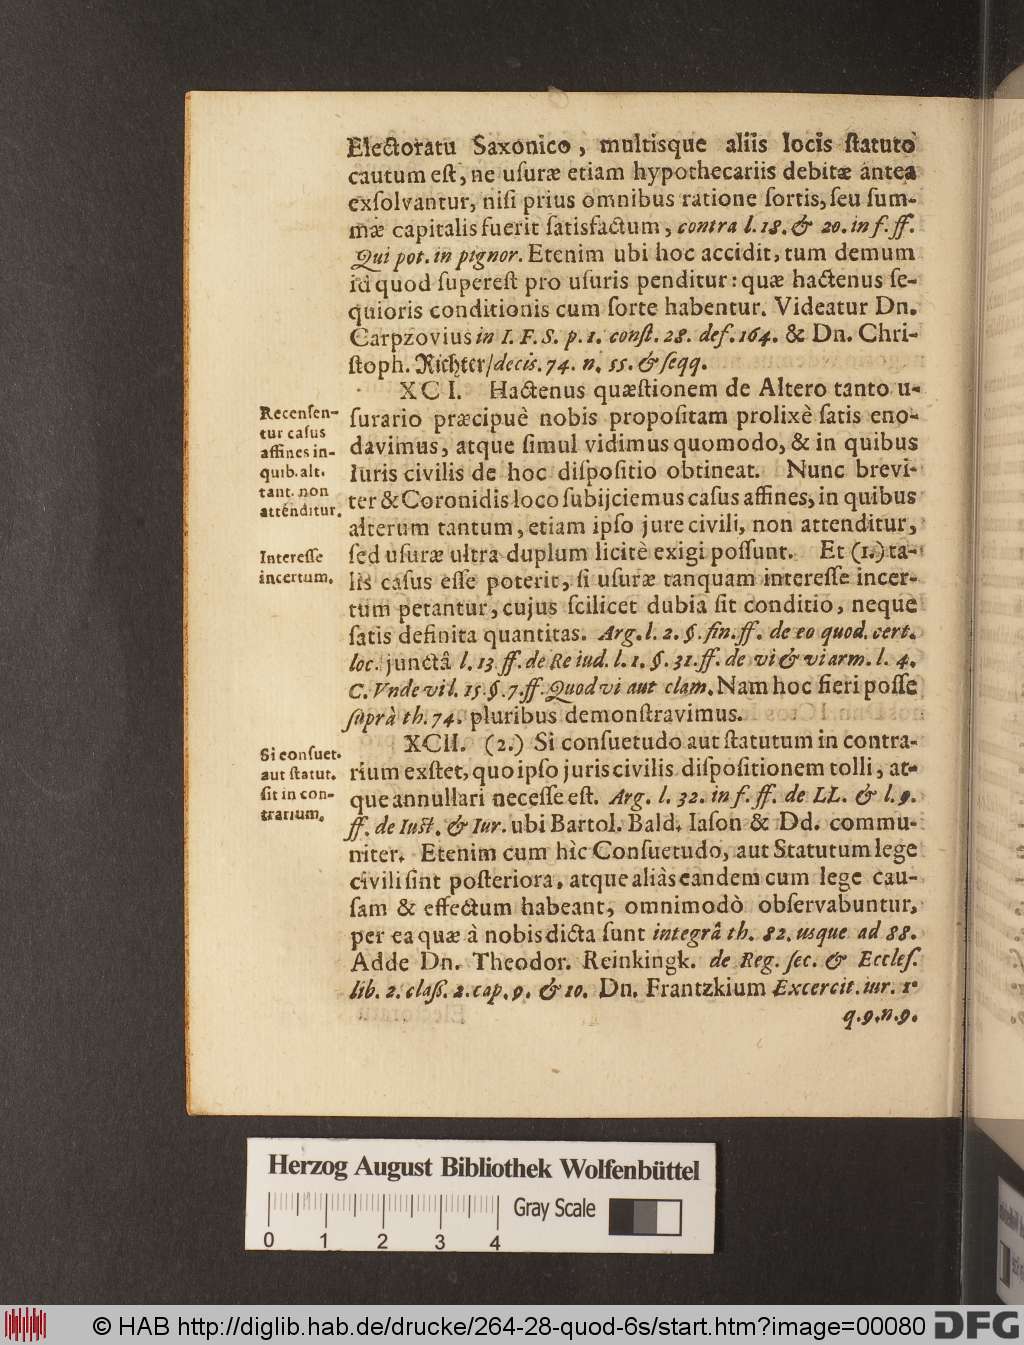 Electoratu Saxonico, multisque aliis locis ſtatuto
cautum eſt, ne uſuræ etiam hypothecariis debitæ antea
exſolvantur, niſi prius omnibus ratione ſortis, ſeu ſum-
mæ capitalis fuerit ſatisfactum, contra l. 18. & 20. in f. ff.
Qui pot. in pignor. Etenim ubi hoc accidit, tum demum
id quod ſupereſt pro uſuris penditur: quæ hactenus ſe-
quioris conditionis cum ſorte habentur. Videatur Dn.
Carpzovius in I. F. S. p. 1. conſt. 28. def. 164. & Dn. Chri-
ſtoph. Richter/ decis. 74. n. 55. & ſeqq.
XCI. Hactenus quæſtionem de Altero tanto u-
ſurario præcipuè nobis propoſitam prolixè ſatis eno-
davimus, atque ſimul vidimus quomodo, & in quibus
Iuris civilis de hoc diſpoſitio obtineat. Nunc brevi-
ter & Coronidis loco ſubijciemus caſus affines, in quibus
alterum tantum, etiam ipſo jure civili, non attenditur,
ſed uſuræ ultra duplum licitè exigi poſſunt. Et (1.) ta-
lis caſus eſſe poterit, ſi uſuræ tanquam intereſſe incer-
tum petantur, cujus ſcilicet dubia ſit conditio, neque
ſatis definita quantitas. Arg. l. 2. §. fin. ff. de eo quod. cert.
loc. junctâ l. 13 ff. de Re iud. l. 1. §. 31. ff. de vi & vi arm. l. 4.
C. Vnde vi l. 15. §. 7. ff. Quod vi aut clam. Nam hoc fieri poſſe
ſuprà th. 74. pluribus demonſtravimus.
XCII. (2.) Si conſuetudo aut ſtatutum in contra-
rium exſtet, quo ipſo juris civilis diſpoſitionem tolli, at-
que annullari neceſſe eſt. Arg. l. 32. in f. ff. de LL. & l. 9.
ff. de Iuſt. & Iur. ubi Bartol. Bald. Iaſon & Dd. commu-
niter. Etenim cum hìc Conſuetudo, aut Statutum lege
civili ſint poſteriora, atque aliàs eandem cum lege cau-
ſam & effectum habeant, omnimodò obſervabuntur,
per ea quæ à nobis dicta ſunt integrâ th. 82. usque ad 88.
Adde Dn. Theodor. Reinkingk. de Reg. ſec. & Eccleſ.
lib. 2. claß. 2. cap. 9. & 10. Dn. Frantzkium Excercit. iur. 1.
q. 9. n. 9.
Recenſen-
tur caſus
affines in-
quib. alt.
tant. non
attenditur.
Intereſſe
incertum.
Si conſuet.
aut ſtatut.
ſit in con-
trarium.
Herzog August Bibliothek Wolfenbüttel
Gray Scale
0 1 2 3 4
© HAB http://diglib.hab.de/drucke/264-28-quod-6s/start.htm?image=00080
DFG